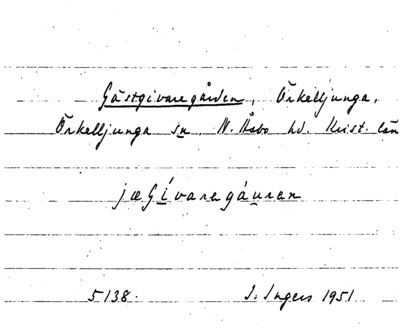 Gästgivaregården, Örkelljunga,
Örkelljunga sn, N. Åsbo hd. Krist. län
jæGívaregáuran
5138. I. Ingers 1951